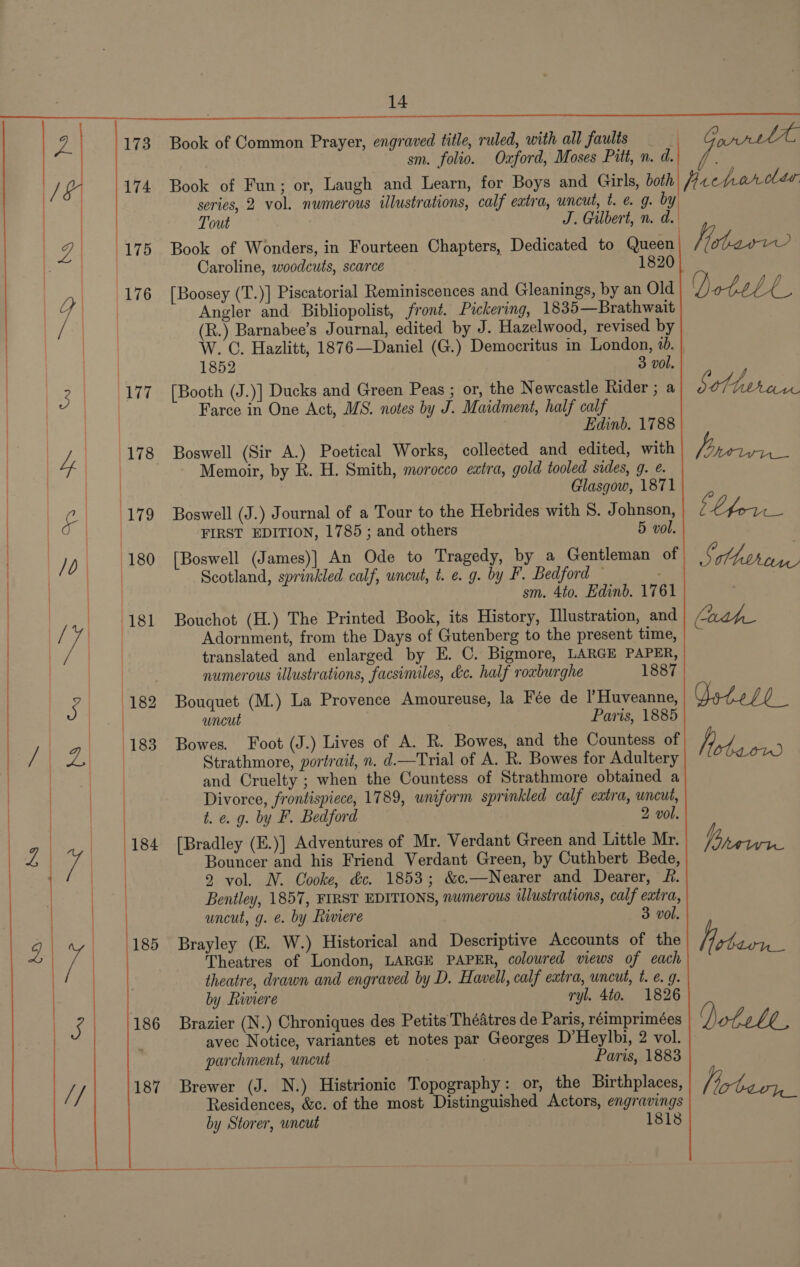 14
2 173 Book of Common Prayer, engraved title, ruled, with all faults Garrett
sm. folio. Oxford, Moses Pitt, n. d.
18 174 Book of Fun; or, Laugh and Learn, for Boys and Girls, both
series, 2 vol. numerous illustrations, calf extra, uncut, t. e. g. by
Tout J. Gilbert, n. d.
2 175 Book of Wonders, in Fourteen Chapters, Dedicated to Queen Robson
Caroline, woodcuts, scarce 1820
176 [Boosey (T.)] Piscatorial Reminiscences and Gleanings, by an Old Dobell
Angler and Bibliopolist, front. Pickering, 1835—Brathwait
(R.) Barnabee's Journal, edited by J. Hazelwood, revised by
W. C. Hazlitt, 1876—Daniel (G.) Democritus in London, ib.
1852 3 vol.
3 177 [Booth (J.)] Ducks and Green Peas; or, the Newcastle Rider; a Sotheran
Farce in One Act, MS. notes by J. Maidment, half calf
Edinb. 1788
4 178 Boswell (Sir A.) Poetical Works, collected and edited, with Brown
Memoir, by R. H. Smith, morocco extra, gold tooled sides, g. e.
Glasgow, 1871
8 179 Boswell (J.) Journal of a Tour to the Hebrides with S. Johnson,
FIRST EDITION, 1785; and others 5 vol.
10 180 [Boswell (James)] An Ode to Tragedy, by a Gentleman of Sotheran
Scotland, sprinkled calf, uncut, t. e. g. by F. Bedford
sm. 4to. Edinb. 1761
181 Bouchot (H.) The Printed Book, its History, Illustration, and Cash
Adornment, from the Days of Gutenberg to the present time,
translated and enlarged by E. C. Bigmore, LARGE PAPER,
numerous illustrations, facsimiles, &c. half roxburghe 1887
3 182 Bouquet (M.) La Provence Amoureuse, la Fée de l'Huveanne, Dobell
uncut Paris, 1885
1 2 183 Bowes. Foot (J.) Lives of A. R. Bowes, and the Countess of Robson
Strathmore, portrait, n. d.—Trial of A. R. Bowes for Adultery
and Cruelty; when the Countess of Strathmore obtained a
Divorce, frontispiece, 1789, uniform sprinkled calf extra, uncut,
t. e. g. by F. Bedford 2 vol.
2 184 [Bradley (E.)] Adventures of Mr. Verdant Green and Little Mr. Brown
Bouncer and his Friend Verdant Green, by Cuthbert Bede,
2 vol. N. Cooke, &c. 1853; &c.—Nearer and Dearer, R.
Bentley, 1857, FIRST EDITIONS, numerous illustrations, calf extra,
uncut, g. e. by Riviere 3 vol.
2 185 Brayley (E. W.) Historical and Descriptive Accounts of the Robson
Theatres of London, LARGE PAPER, coloured views of each
theatre, drawn and engraved by D. Havell, calf extra, uncut, t. e. g.
by Riviere ryl. 4to. 1826
3 186 Brazier (N.) Chroniques des Petits Théâtres de Paris, réimprimées Dobell
avec Notice, variantes et notes par Georges D'Heylbi, 2 vol.
parchment, uncut Paris, 1883
11 187 Brewer (J. N.) Histrionic Topography: or, the Birthplaces, Robson
Residences, &c. of the most Distinguished Actors, engravings
by Storer, uncut 1818